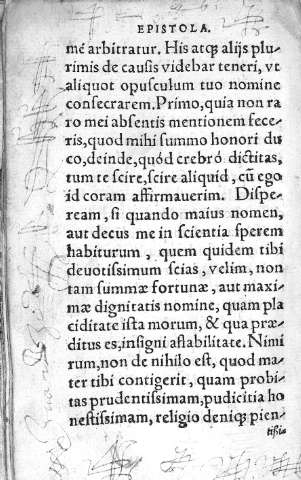 EPISTOLA.
mé arbitratur. His atq; alijs plu-
rimis de causis videbar teneri, vt
aliquot opusculum tuo nomine
consecrarem. Primo, quia non ra
ro mei absentis mentionem fece-
ris, quod mihi summo honori du
co, deinde, quód crebró dictitas,
tum te scire, scire aliquid, cũ ego
id coram affirmauerim. Dispe-
ream, si quando maius nomen,
aut decus me in scientia sperem
habiturum, quem quidem tibi
deuotissimum scias, velim, non
tam summæ fortunæ, aut maxi-
mæ dignitatis nomine, quam pla
ciditate ista morum, & qua præ-
ditus es, insigni affabilitate. Nimi
rum, non de nihilo est, quod ma-
ter tibi contigerit, quam probi-
tas prudentissimam, pudicitia ho
nestissimam, religio deniq; pien-
tissia